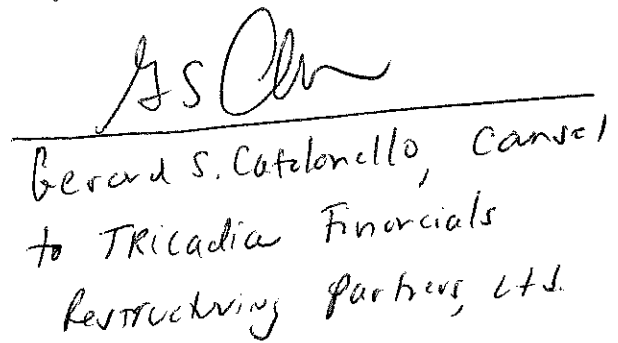 GS Cat
Gerard S. Catalanello, Counsel
to TRicadia Financials
Restructuring Partners, Ltd.